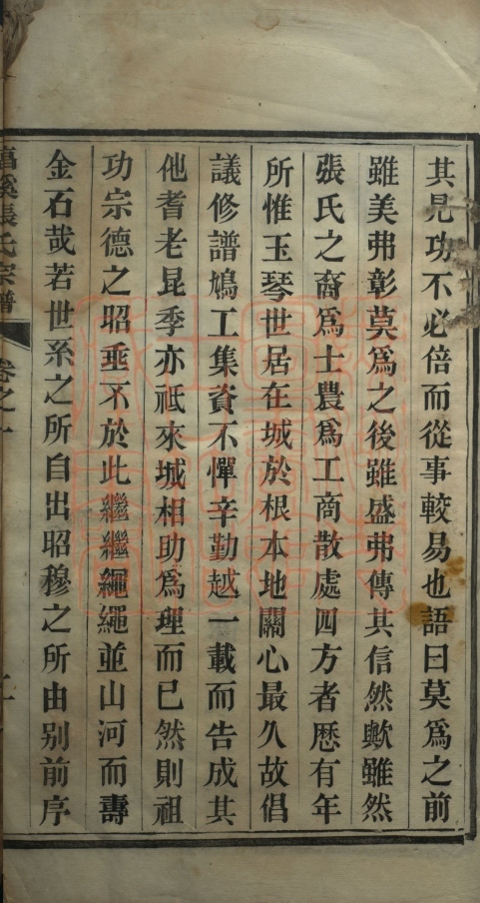 其見功不必倍而從事較易也語曰莫爲之前
雖美弗彰莫爲之後雖盛弗傳其信然歟雖然
張氏之裔爲士農爲工商散處四方者歷有年
所惟玉琴世居在城於根本地關心最久故倡
議修譜鳩工集資不憚辛勤越一載而告成其
他耆老昆季亦祇來城相助爲理而已然則祖
功宗德之昭垂不於此繼繼繩繩並山河而壽
金石哉若世系之所自出昭穆之所由別前序
張氏宗譜
卷之一